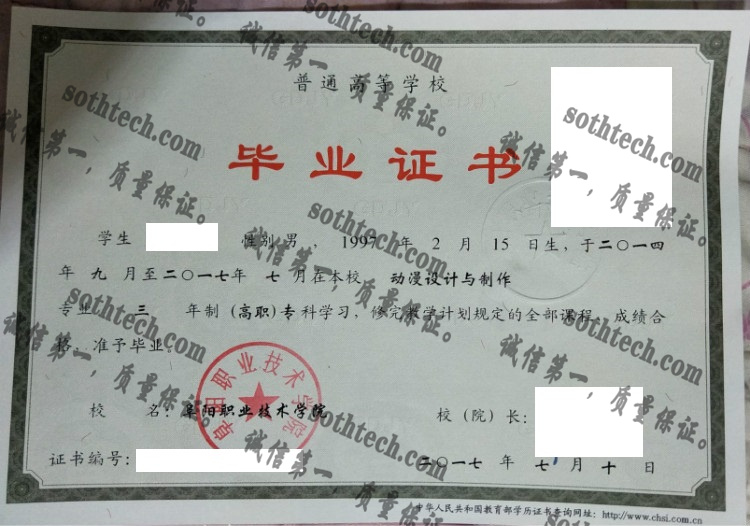 普通高等学校
毕业证书
学生 性别 男 ，1997 年 2 月 15 日生，于二〇一四
年 九 月至二〇一七年 七 月在本校 动漫设计与制作
专业 三 年制（高职）专科学习，修完教学计划规定的全部课程，成绩合
格，准予毕业。
校 名：阜阳职业技术学院
校（院）长：
证书编号：
二〇一七 年 七 月 十 日
中华人民共和国教育部学历证书查询网址：http://www.chsi.com.cn
阜阳职业技术学院
sothtech.com
诚信第一，质量保证。
sothtech.com
诚信第一，质量保证。
sothtech.com
诚信第一，质量保证。
sothtech.com
诚信第一，质量保证。
sothtech.com
诚信第一，质量保证。
sothtech.com
诚信第一，质量保证。
sothtech.com
诚信第一，质量保证。
sothtech.com